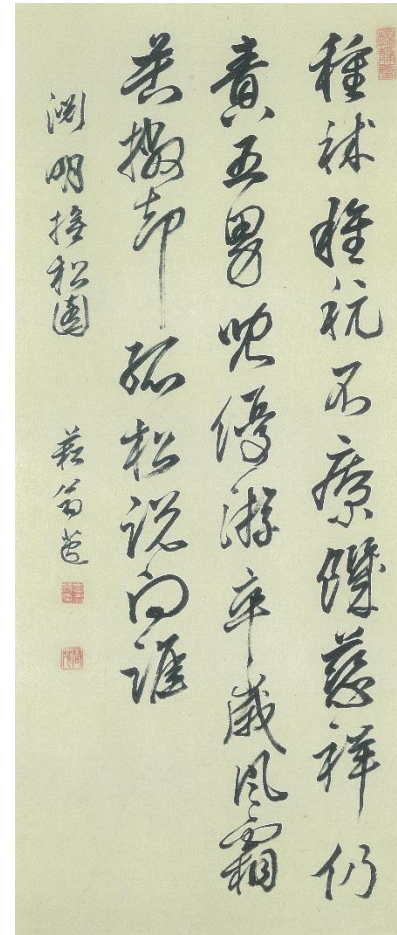 種秫種秔不療饑慈祥仍
責五男兒優游卒歲風霜
苦撇却孤松説向誰
渕明撫松圖
菘翁苞